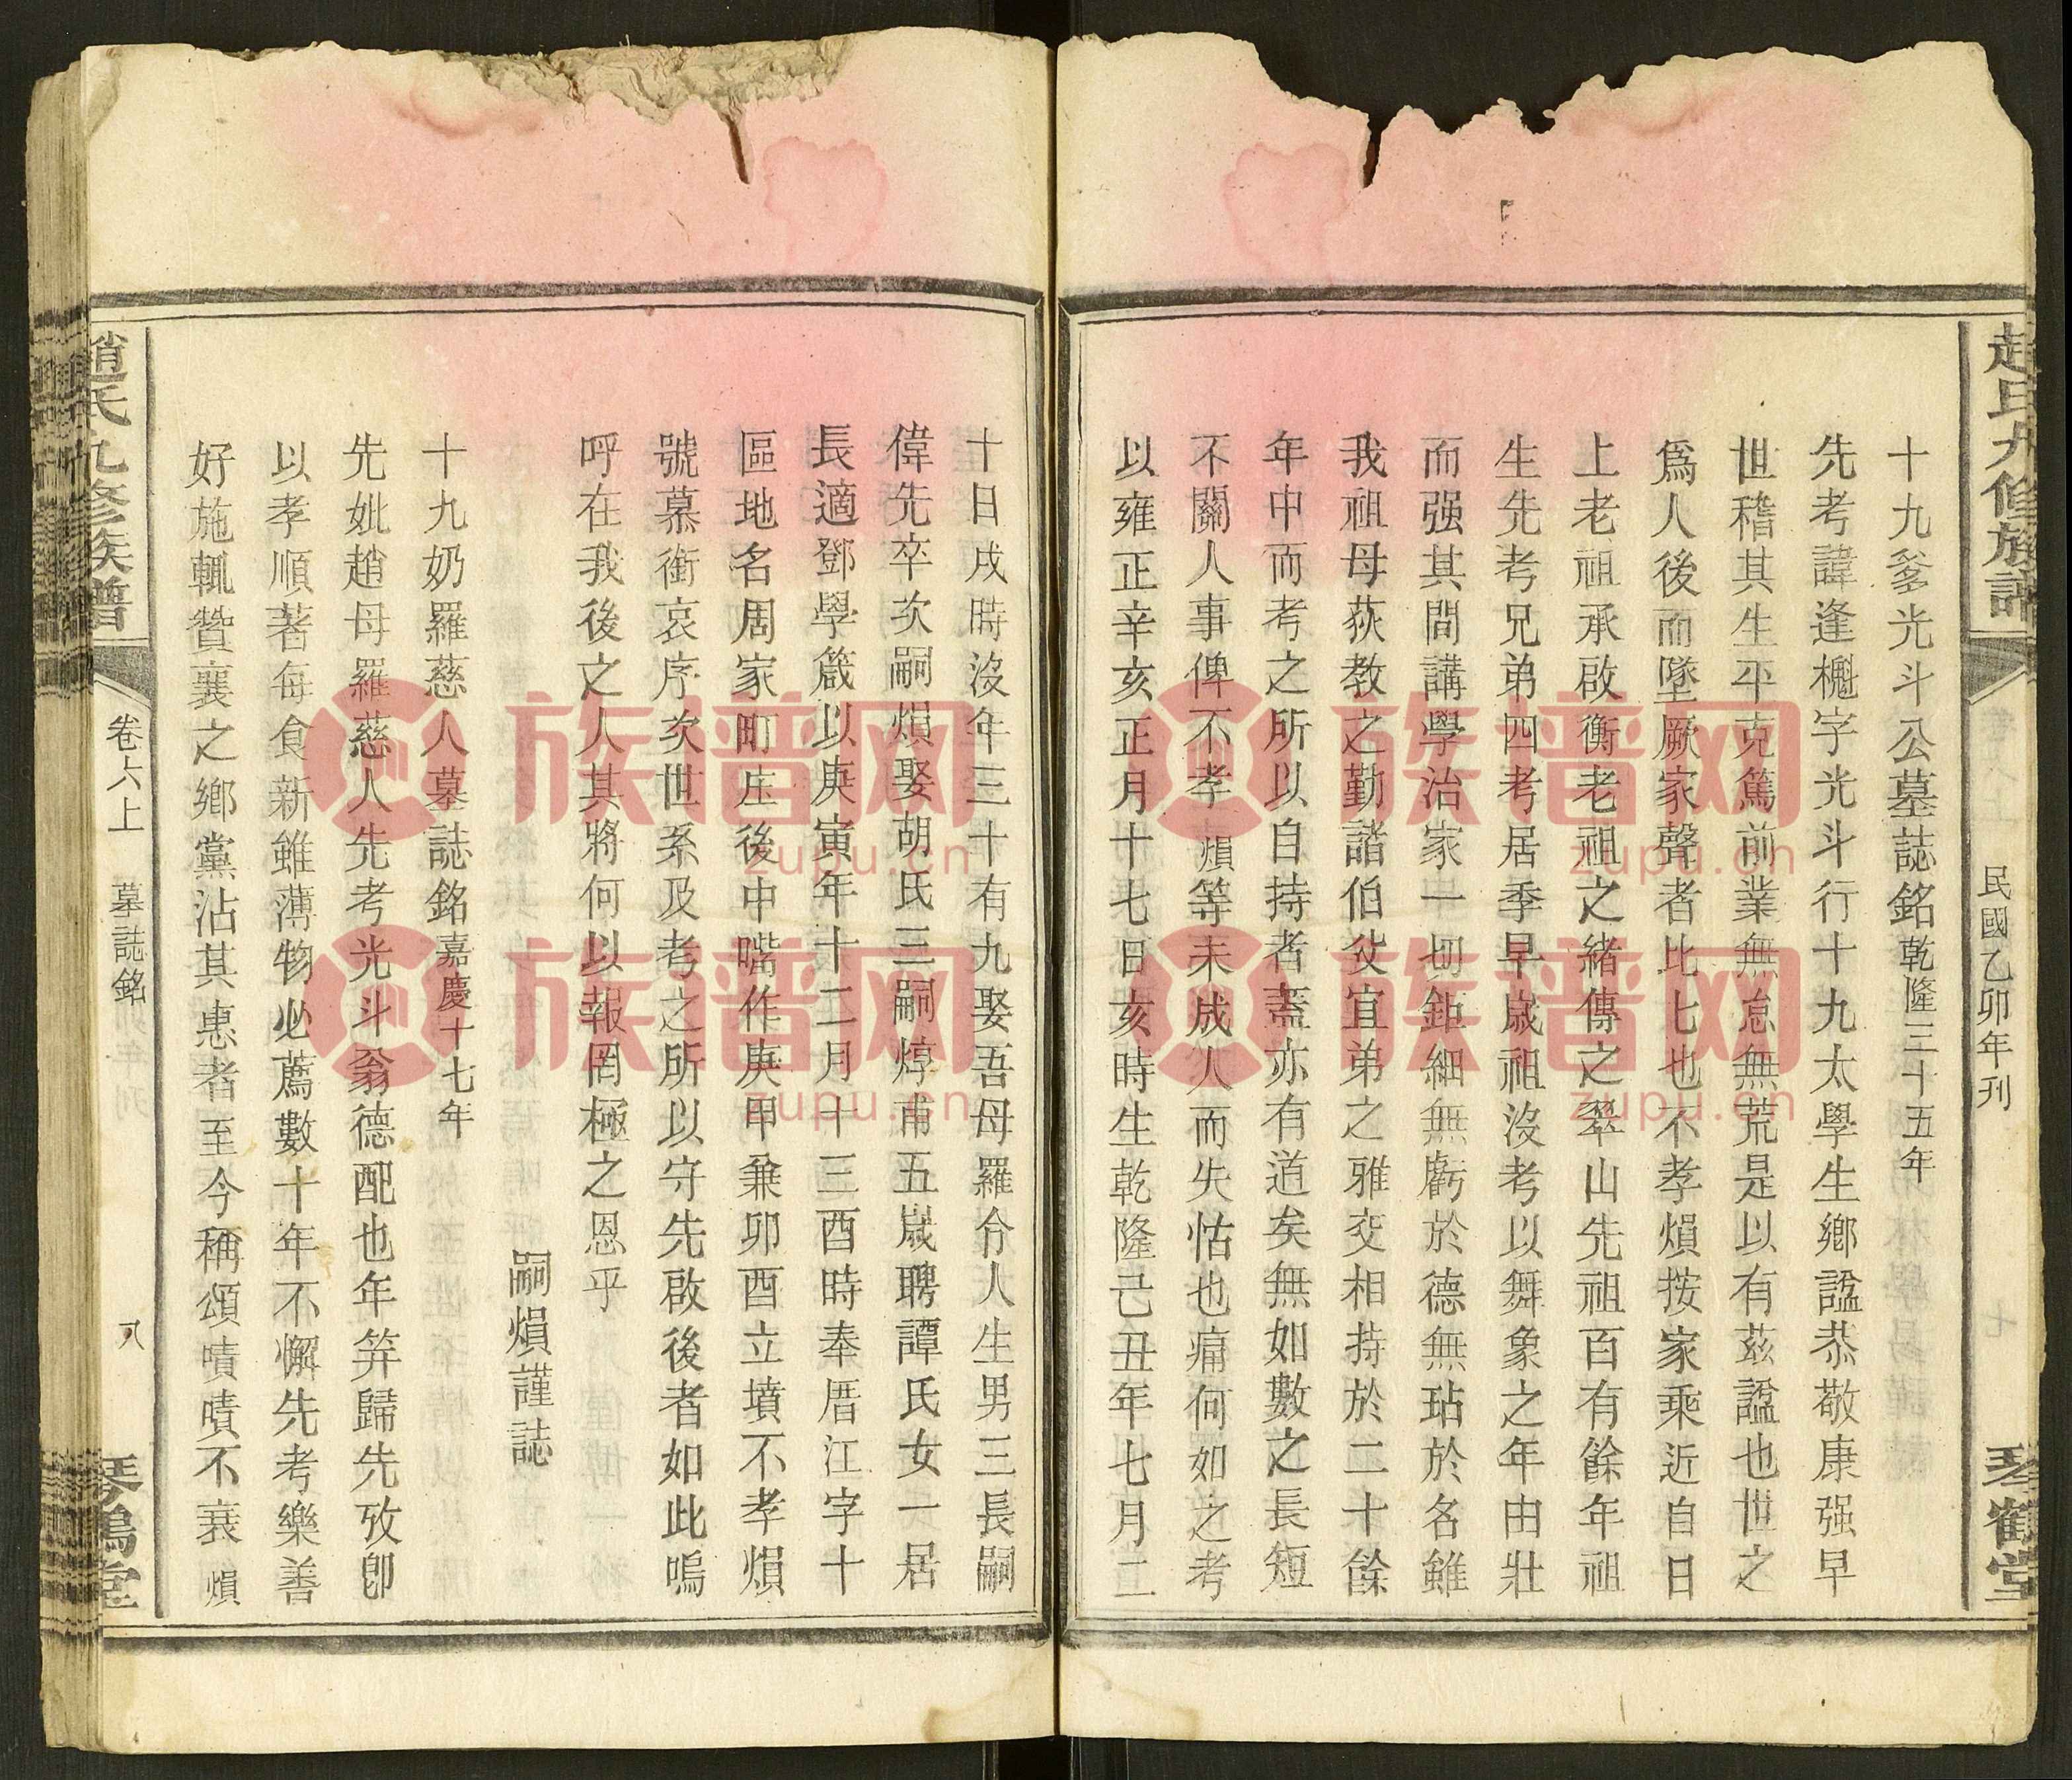 趙氏九修族譜
民國乙卯年刊
琴鶴堂
十九爹光斗公墓誌銘乾隆三十五年
先考諱逢櫆字光斗行十九太學生鄉諡恭敬康强早
世稽其生平克篤前業無怠無荒是以有茲諡也世之
爲人後而墜厥家聲者比比也不孝熉按家乘近自日
上老祖承啟衡老祖之緒傳之翠山先祖百有餘年祖
生先考兄弟四考居季早歲祖沒考以舞象之年由壯
而强其間講學治家一切鉅細無虧於德無玷於名雖
我祖母荻教之勤諸伯父宜弟之雅交相持於二十餘
年中而考之所以自持者蓋亦有道矣無如數之長短
不關人事俾不孝熉等未成人而失怙也痛何如之考
以雍正辛亥正月十七日亥時生乾隆己丑年七月二
十日戌時沒年三十有九娶吾母羅令人生男三長嗣
偉先卒次嗣熉娶胡氏三嗣焞甫五歲聘譚氏女一居
長適鄧學箴以庚寅年十二月十三酉時奉厝江字十
區地名周家町庄後中嘴作庚甲兼卯酉立墳不孝熉
號慕銜哀序次世系及考之所以守先啟後者如此嗚
呼在我後之人其將何以報罔極之恩乎
嗣熉謹誌
十九奶羅慈人墓誌銘嘉慶十七年
先妣趙母羅慈人先考光斗翁德配也年笄歸先攷卽
以孝順著每食新雖薄物必薦數十年不懈先考樂善
好施輒贊襄之鄉黨沾其惠者至今稱頌嘖嘖不衰熉
趙氏九修族譜
卷六上
墓誌銘
八
琴鶴堂
族谱网
zupu.cn
族谱网
zupu.cn
族谱网
zupu.cn
族谱网
zupu.cn